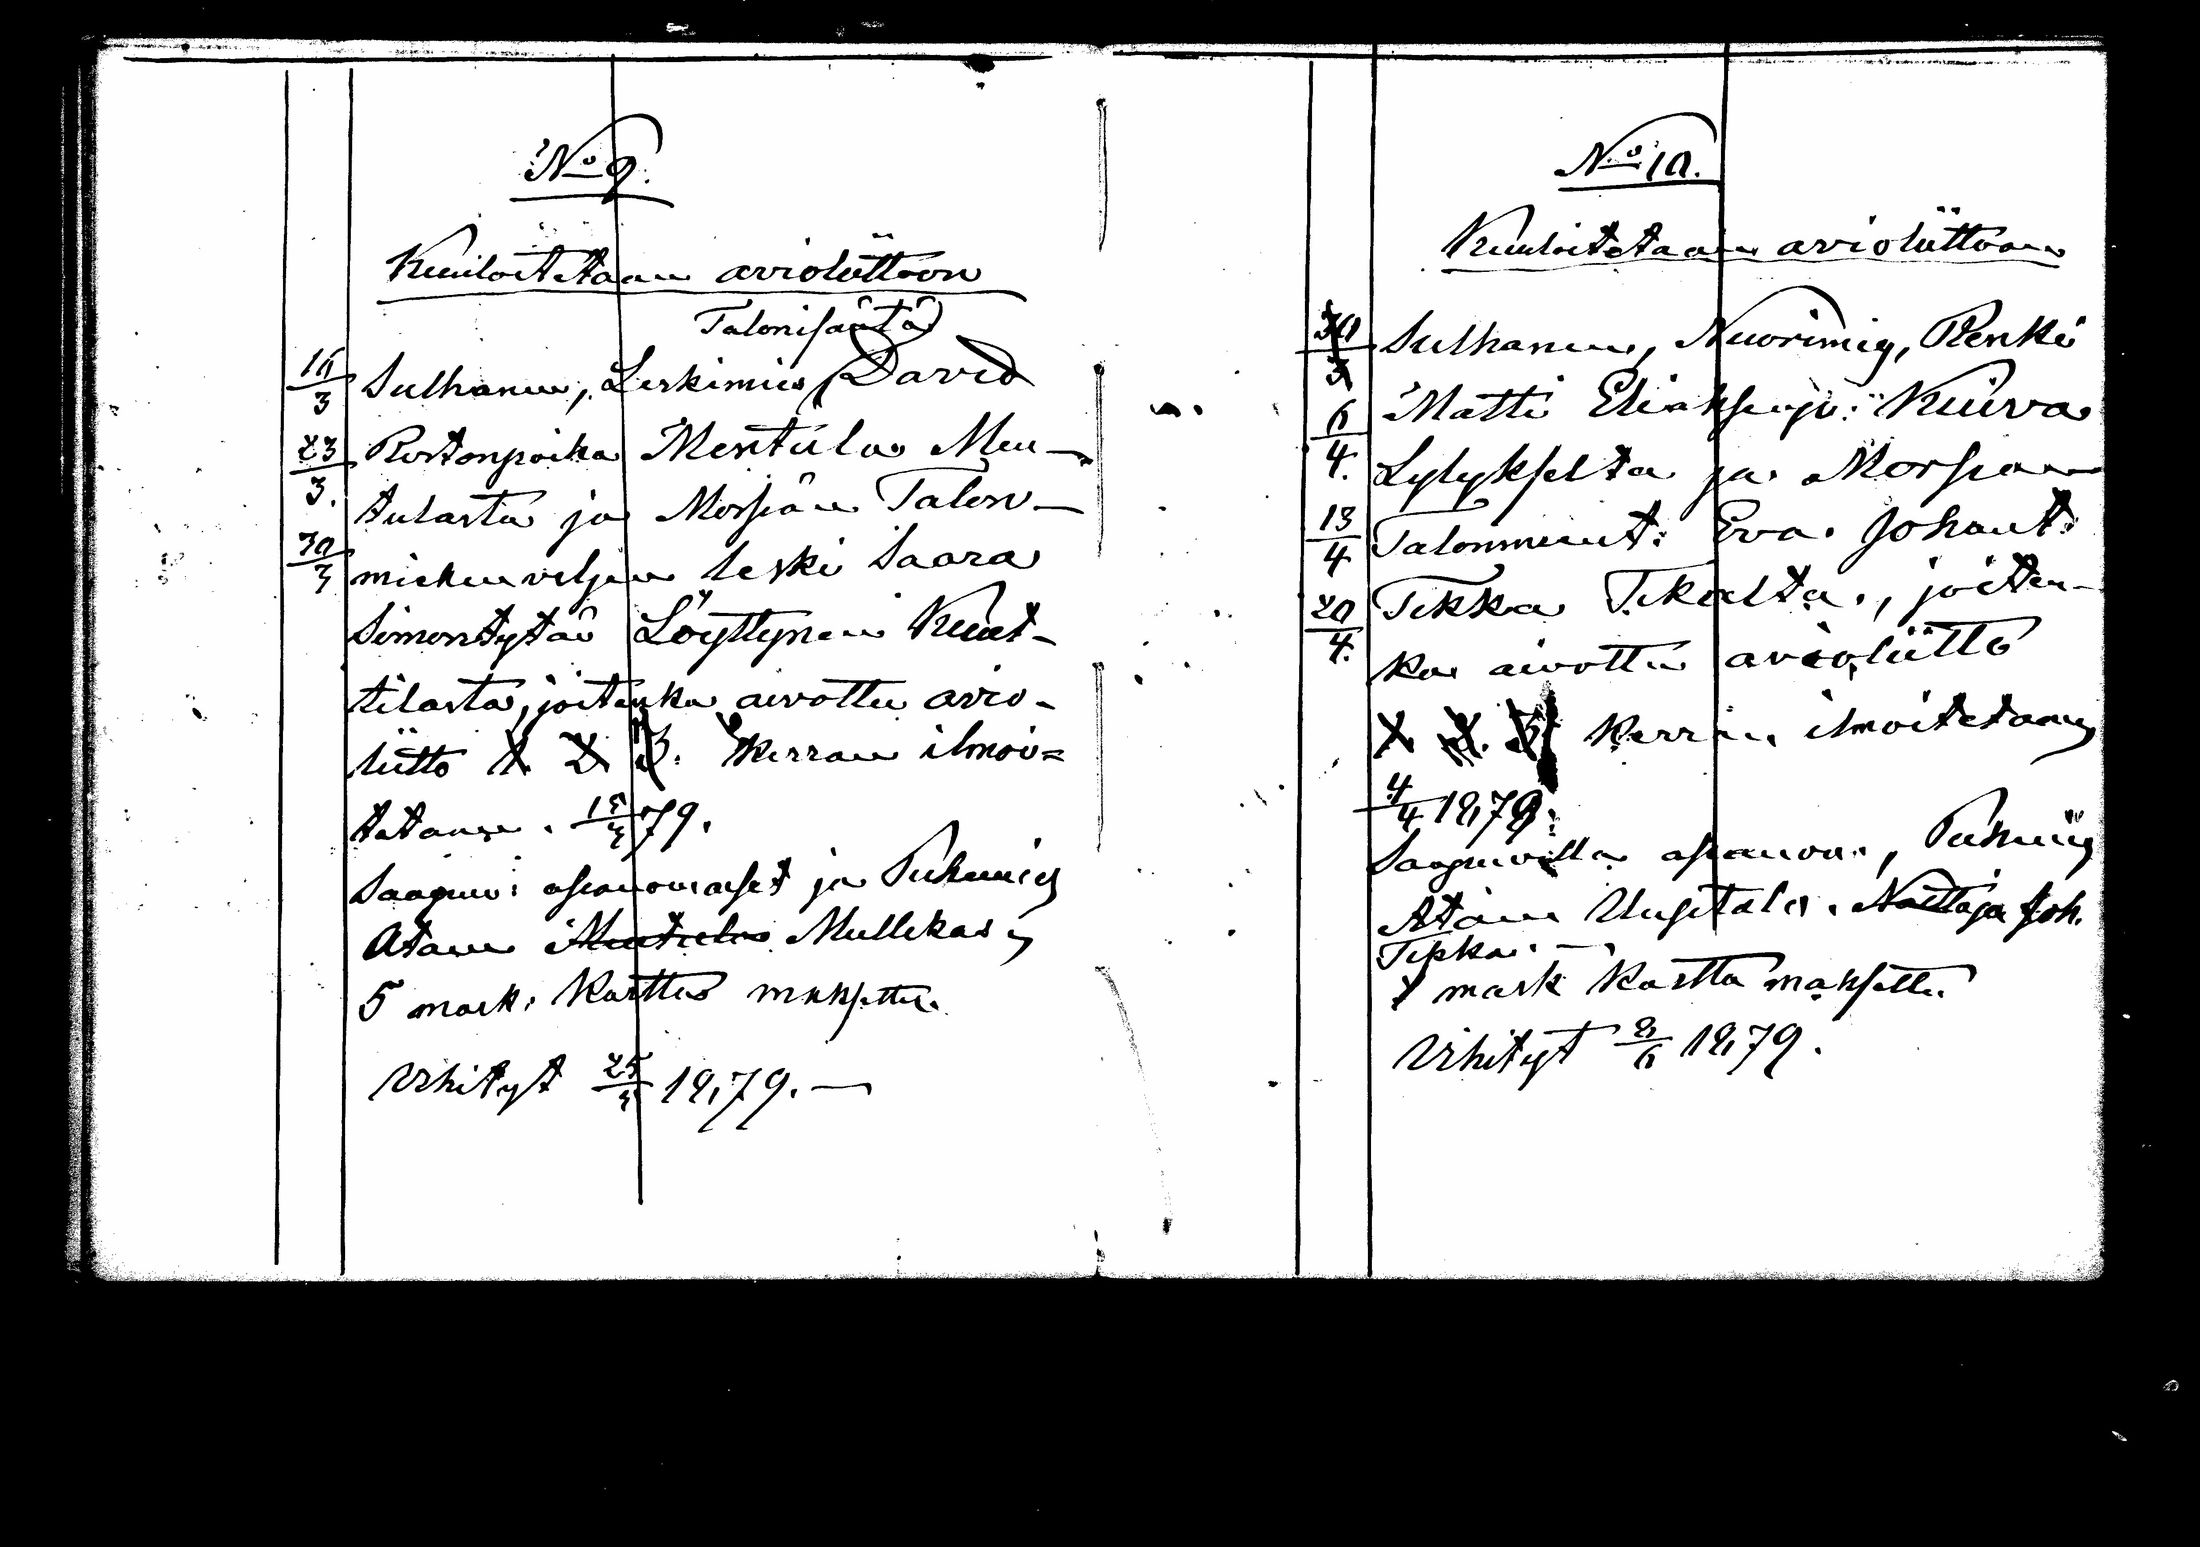 No 9.
Kuuloitetaan avioliittoon
Talonisäntä
16/3 Sulhanen, Leskimies David
23/3. Ristonpoika Mentula Men-
tulasta ja Morsian Talon-
30/3 miehenveljen leski Saara
Simontytär Löyttynen Kunt-
tilasta, joitenka aivottu avio-
liitto 1. 2. 3. kerran ilmoi=
tetaan. 15/3 79.
Saapuv: asianomaiset ja Puhemies
Atam Mentula Mullikas
5 mark: Kortto maksettu.
Vihityt 25/5 1879. —
No 10.
Kuuloitetaan avioliittoon
30/3 Sulhanen, Nuorimies, Renki
6/4. Matti Eliaksenp: Kuiva
Lylykselta ja Morsian
13/4 Talonmiest: Eva Johant:
20/4. Tikka Tikalta, joiten-
ka aivottu avioliitto
1. 2. 3. kerran ilmoitetaan
4/4 1879.
Saapuvilla asianom., Puhemies
Atam Uusitalo. Naittaja Joh.
Tikka. —
mark Kortto maksettu
Vihityt 8/6 1879.